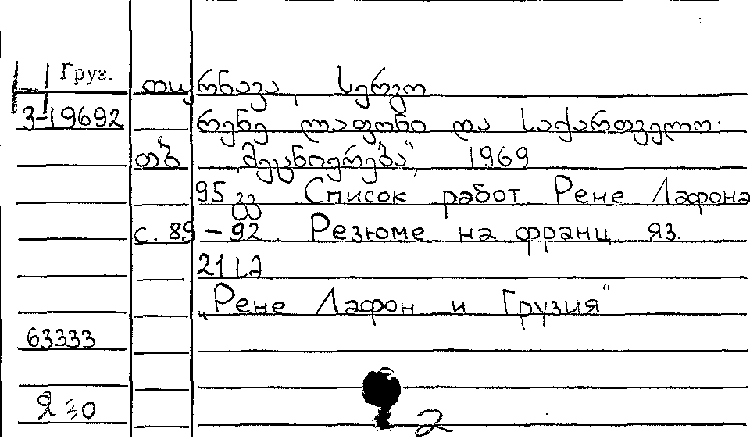 Груз. თურნავა, სერგო
3-19692 რენე ლაფონი და საქართველო.
თბ „მეცნიერება“, 1969
95 გვ Список работ Рене Лафона
с. 89-92 Резюме на франц яз.
„Рене Лафон и Грузия“
63333
2